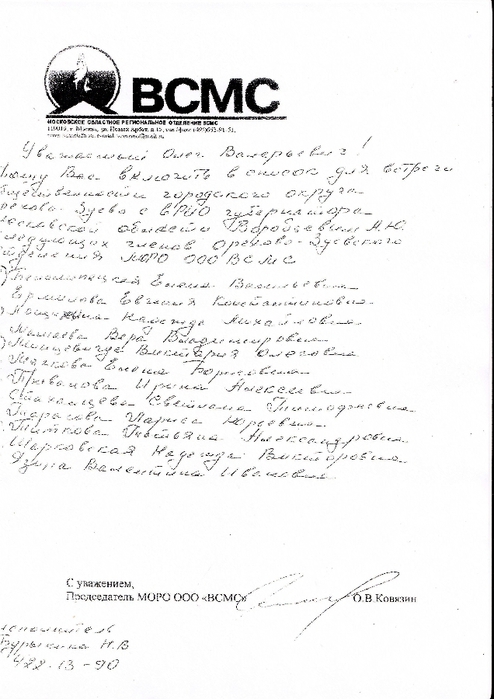 ВСМС
МОСКОВСКОЕ ОБЛАСТНОЕ РЕГИОНАЛЬНОЕ ОТДЕЛЕНИЕ ВСМС
Уважаемый Олег Валерьевич!
Прошу Вас включить в список для встречи
общественности городского округа
Орехово-Зуево с ВРИО губернатора
Московской области Воробьевым А.Ю.
следующих членов Орехово-Зуевского
отделения МОРО ООО ВСМС
Елена Васильевна
Ермилова Евгения Константиновна
Надежда Михайловна
Вера Владимировна
Виктория Олеговна
Елена Борисовна
Привалова Ирина Алексеевна
Светлана Геннадьевна
Тарасова Лариса Юрьевна
Титкова Татьяна Александровна
Шарковская Надежда Викторовна
Валентина Ивановна
С уважением,
Председатель МОРО ООО «ВСМС» О.В.Ковязин
исполнитель
Н.В
422-13-90